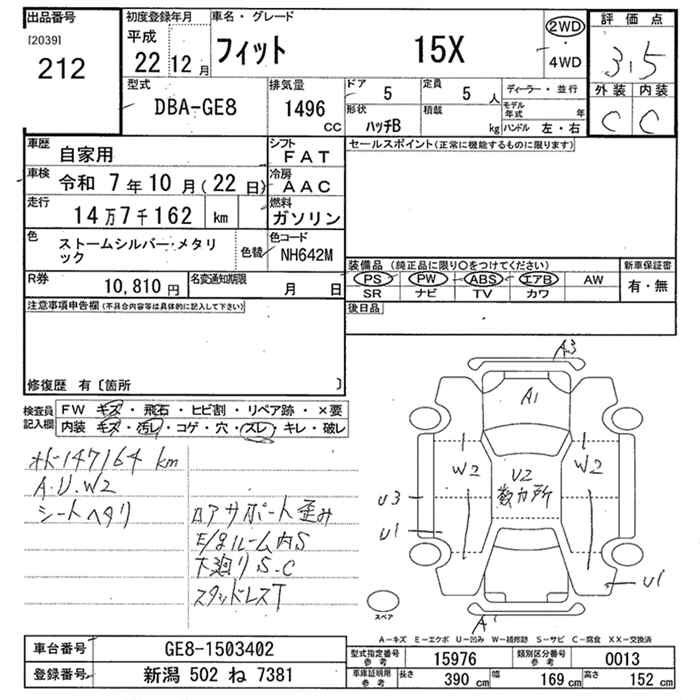 出品番号
[2039]
212
初度登録年月
平成
22 12 月
車名・グレード
フィット 15X
2WD
・
4WD
評価点
3.5
外装 内装
C C
型式
DBA-GE8
排気量
1496
CC
ドア
5
定員
5 人
形状
ハッチB
積載
kg
ディーラー・並行
モデル
年式 年
ハンドル 左・右
車歴
自家用
シフト
FAT
車検
令和 7年 10月(22日)
冷房
AAC
走行
14万7千162 km
燃料
ガソリン
色
ストームシルバー・メタリ
ック
色替
色コード
NH642M
R券
10,810 円
名変通知期限
月 日
セールスポイント(正常に機能するものに限ります)
装備品 (純正品に限り○をつけてください)
新車保証書
PS PW ABS エアB AW
有・無
SR ナビ TV カワ
注意事項申告欄(不具合内容等は具体的に記入して下さい)
後日品
修復歴 有〔箇所 〕
検査員
記入欄
FW キズ・飛石・ヒビ割・リペア跡・×要
内装 キズ・汚レ・コゲ・穴・スレ・キレ・破レ
147164 km
A.U.W2
シートヘタリ
ロアサポート歪み
E/gルーム内S
下廻りS.C
スタッドレスT
A3
A1
W2
U2
数カ所
W2
U3
U1
U1
A1
スペア
A-キズ E-エクボ U-凹み W-補修跡 S-サビ C-腐食 XX-交換済
車台番号
GE8-1503402
登録番号
新潟 502 ね 7381
型式指定番号
参考
15976
類別区分番号
参考
0013
車庫証明用
参考
長さ
390 cm
幅
169 cm
高さ
152 cm